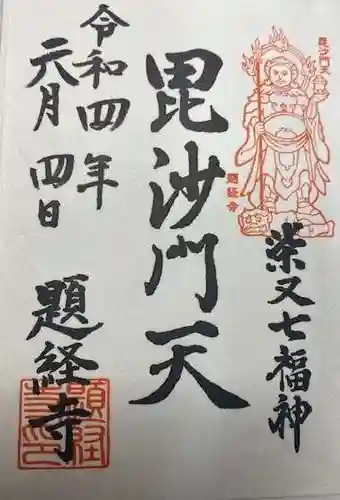 毘沙門天
題経寺
柴又七福神
毘沙門天
令和四年
元月四日
題経寺
題経寺